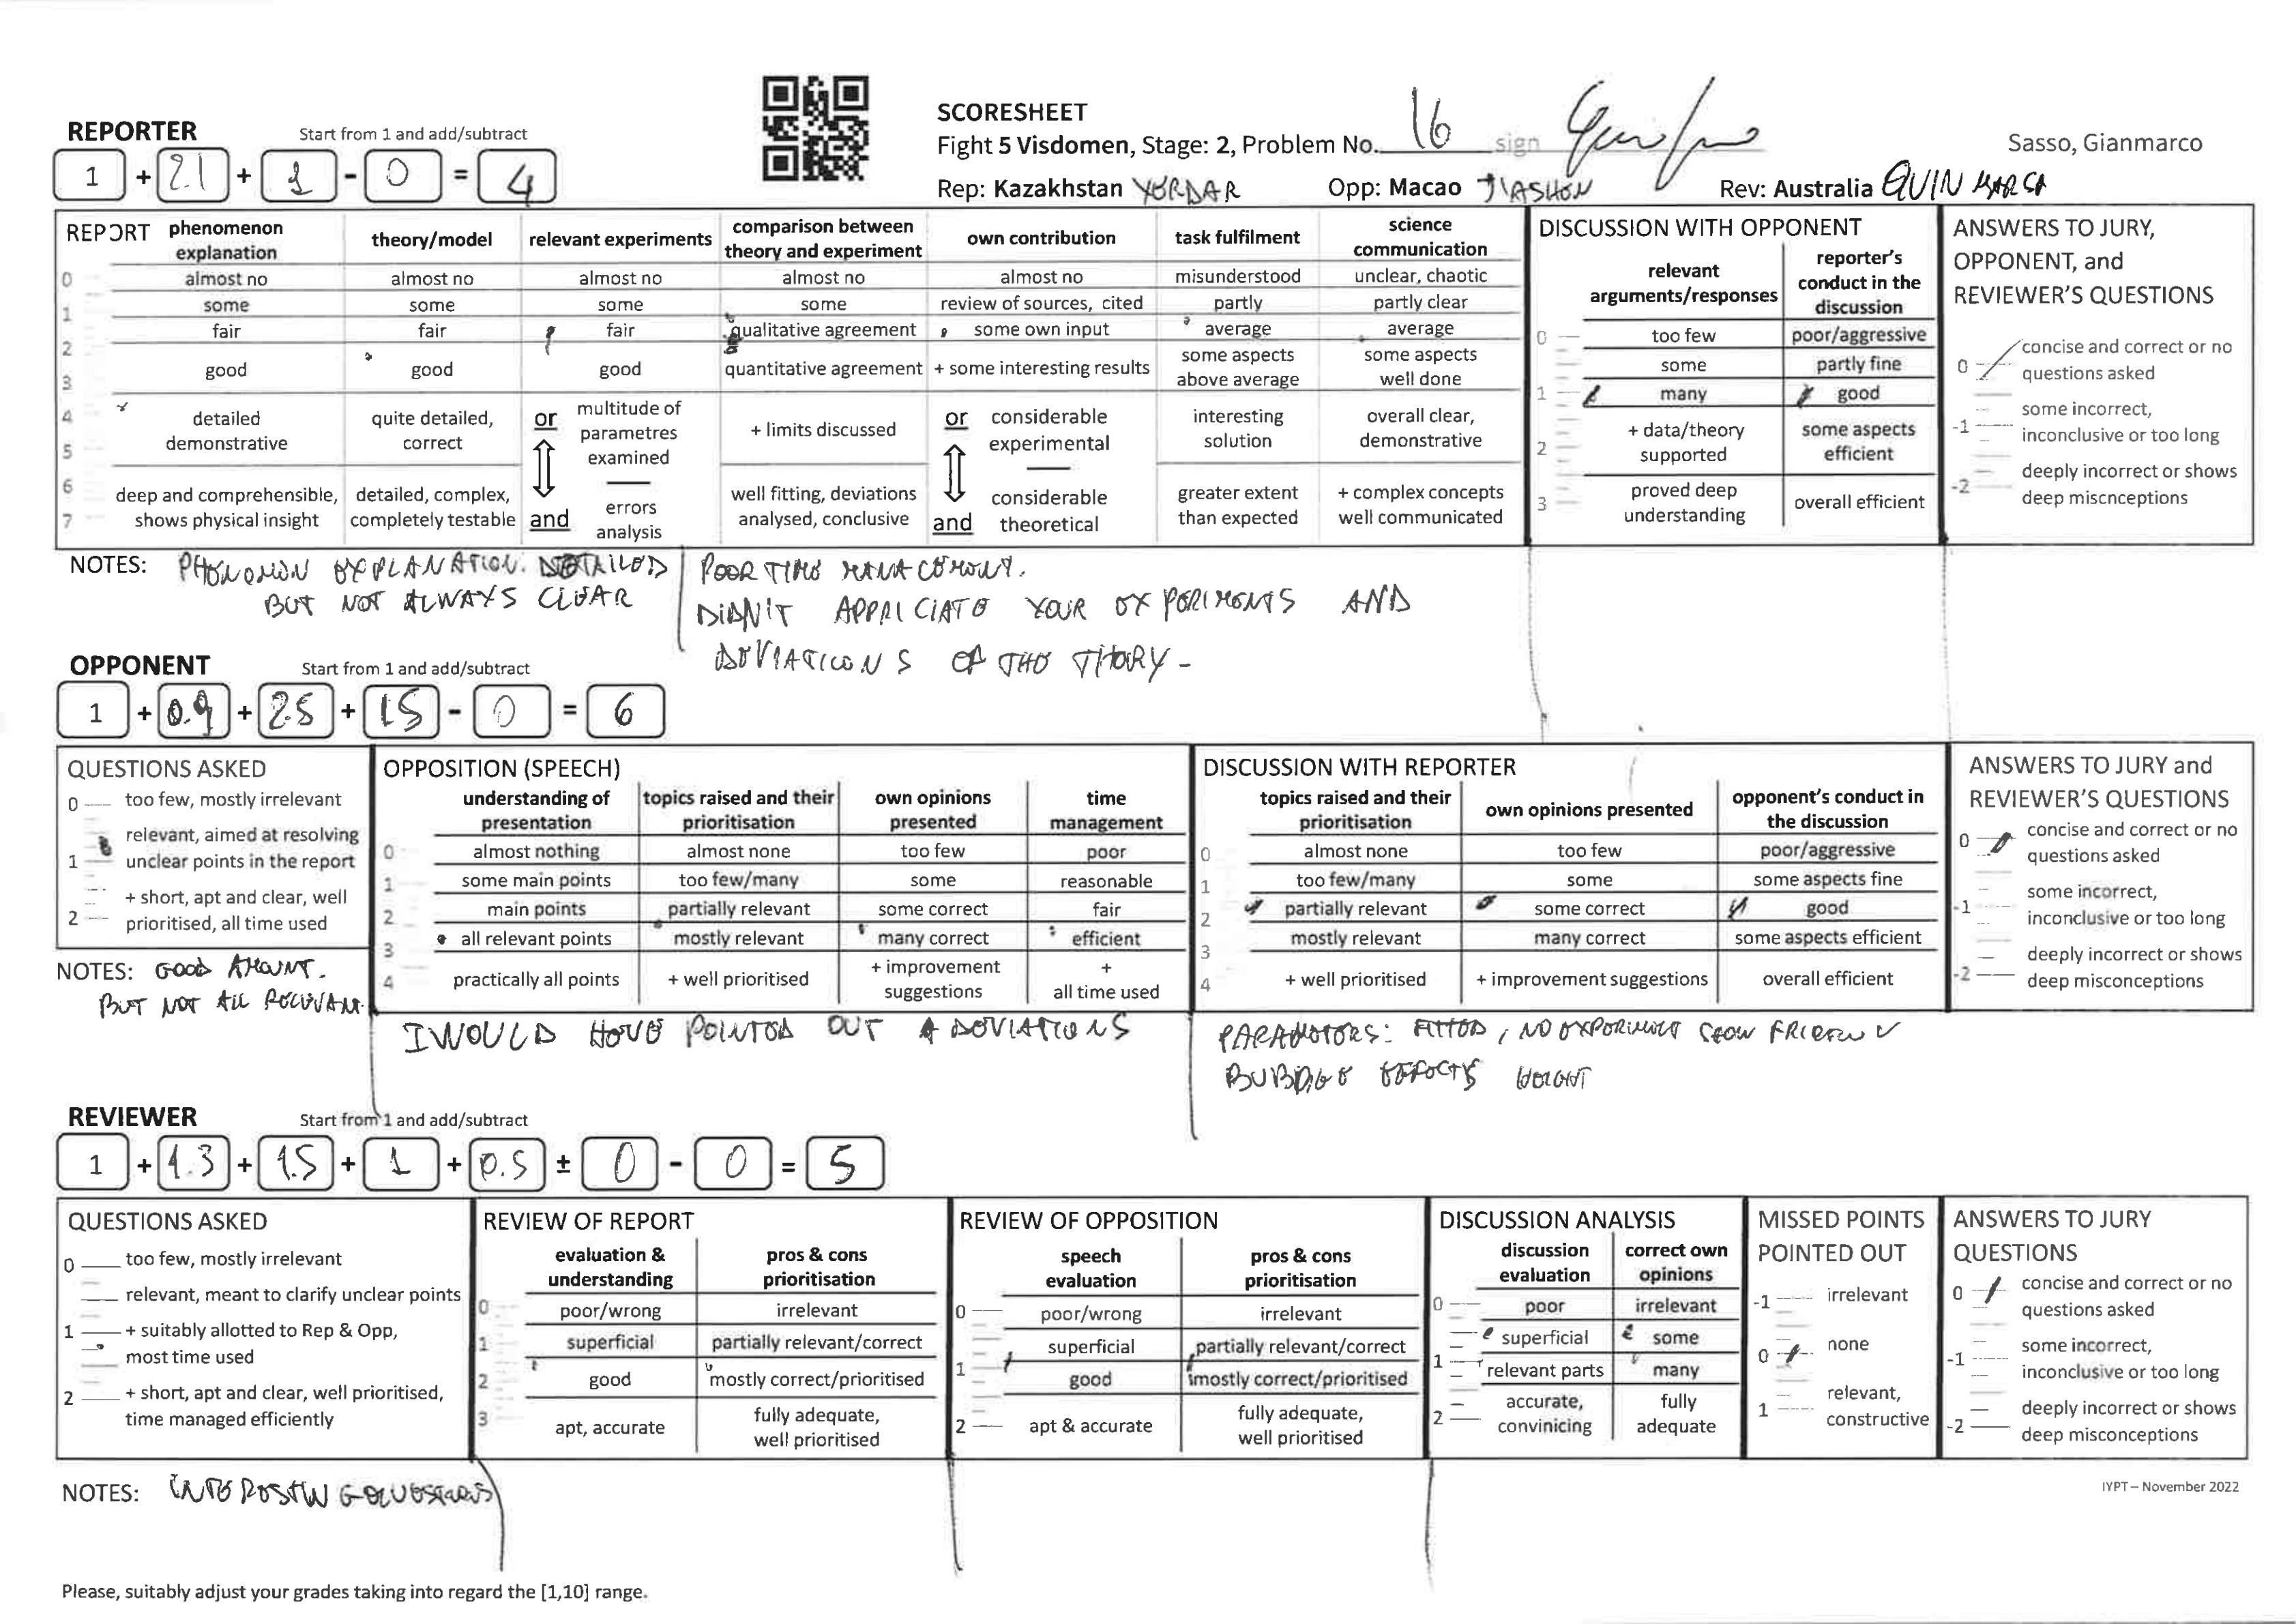 SCORESHEET
Fight 5 Visdomen, Stage: 2, Problem No. 16 sign
Sasso, Gianmarco
Rep: Kazakhstan YORDAR Opp: Macao JIASHEN Rev: Australia QUIN MARCA
REPORTER Start from 1 and add/subtract
1 + 2.1 + 1 - 0 = 4
REPORT
phenomenon explanation
theory/model
relevant experiments
comparison between theory and experiment
own contribution
task fulfilment
science communication
0
1
2
3
4
5
6
7
almost no almost no almost no almost no almost no misunderstood unclear, chaotic
some some some some review of sources, cited partly partly clear
fair fair fair qualitative agreement some own input average average
good good good quantitative agreement + some interesting results some aspects above average some aspects well done
detailed demonstrative
quite detailed, correct
or
multitude of parametres examined
+ limits discussed
or
considerable experimental
interesting solution
overall clear, demonstrative
deep and comprehensible, shows physical insight
detailed, complex, completely testable
and
errors analysis
well fitting, deviations analysed, conclusive
and
considerable theoretical
greater extent than expected
+ complex concepts well communicated
DISCUSSION WITH OPPONENT
relevant arguments/responses
reporter's conduct in the discussion
0 too few poor/aggressive
some partly fine
1 many good
2 + data/theory supported some aspects efficient
3 proved deep understanding overall efficient
ANSWERS TO JURY,
OPPONENT, and
REVIEWER'S QUESTIONS
0 concise and correct or no
questions asked
-1 some incorrect,
inconclusive or too long
-2 deeply incorrect or shows
deep miscnceptions
NOTES: PHENOMEN EXPLANATION. DETAILED
BUT NOT ALWAYS CLEAR
POOR TIME MANAGEMENT.
DIDN'T APPRICIATE YOUR EXPERIMENTS AND
DEVIATIONS OF THE THEORY -
OPPONENT Start from 1 and add/subtract
1 + 0.9 + 2.5 + 1.5 - 0 = 6
QUESTIONS ASKED
0 too few, mostly irrelevant
relevant, aimed at resolving
1 unclear points in the report
+ short, apt and clear, well
2 prioritised, all time used
NOTES: GOOD AMOUNT.
BUT NOT ALL RELEVANT.
OPPOSITION (SPEECH)
understanding of presentation
topics raised and their prioritisation
own opinions presented
time management
0 almost nothing almost none too few poor
1 some main points too few/many some reasonable
2 main points partially relevant some correct fair
3 all relevant points mostly relevant many correct efficient
4 practically all points + well prioritised + improvement suggestions + all time used
I WOULD HAVE POINTED OUT DEVIATIONS
DISCUSSION WITH REPORTER
topics raised and their prioritisation
own opinions presented
opponent's conduct in the discussion
0 almost none too few poor/aggressive
1 too few/many some some aspects fine
2 partially relevant some correct good
3 mostly relevant many correct some aspects efficient
4 + well prioritised + improvement suggestions overall efficient
PARAMETERS: FITTED, NO EXPERIMENT
BUBBLE EFFECTS
ANSWERS TO JURY and
REVIEWER'S QUESTIONS
0 concise and correct or no
questions asked
-1 some incorrect,
inconclusive or too long
-2 deeply incorrect or shows
deep misconceptions
REVIEWER Start from 1 and add/subtract
1 + 1.3 + 1.5 + 1 + 0.5 ± 0 - 0 = 5
QUESTIONS ASKED
0 too few, mostly irrelevant
relevant, meant to clarify unclear points
1 + suitably allotted to Rep & Opp,
most time used
2 + short, apt and clear, well prioritised,
time managed efficiently
REVIEW OF REPORT
evaluation & understanding
pros & cons prioritisation
0 poor/wrong irrelevant
1 superficial partially relevant/correct
2 good mostly correct/prioritised
3 apt, accurate fully adequate, well prioritised
REVIEW OF OPPOSITION
speech evaluation
pros & cons prioritisation
0 poor/wrong irrelevant
superficial partially relevant/correct
1 good mostly correct/prioritised
2 apt & accurate fully adequate, well prioritised
DISCUSSION ANALYSIS
discussion evaluation
correct own opinions
0 poor irrelevant
superficial some
1 relevant parts many
2 accurate, convinicing fully adequate
MISSED POINTS
POINTED OUT
-1 irrelevant
0 none
1 relevant,
constructive
ANSWERS TO JURY
QUESTIONS
0 concise and correct or no
questions asked
-1 some incorrect,
inconclusive or too long
-2 deeply incorrect or shows
deep misconceptions
NOTES:
IYPT – November 2022
Please, suitably adjust your grades taking into regard the [1,10] range.